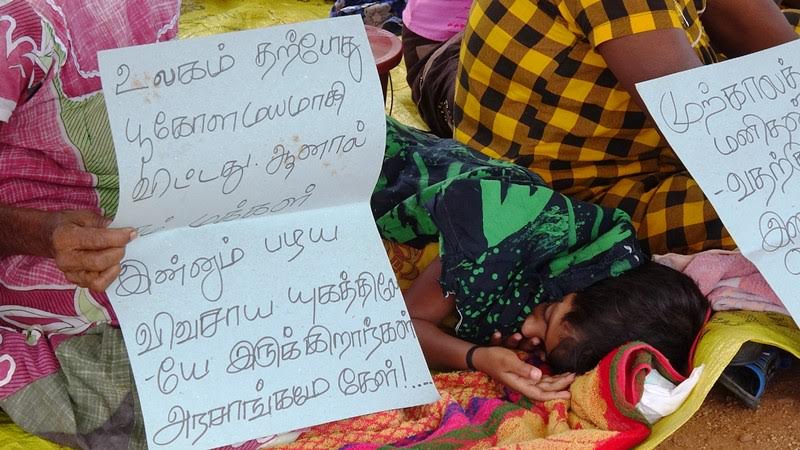 உலகம் தற்போது
பூகோளமயமாகி
விட்டது. ஆனால்
மக்கள்
இன்னும் பழைய
விவசாய யுகத்திலே
-யே இருக்கிறார்கள்
அரசாங்கமே கேள்!....
முற்காலத்
மனிதன்